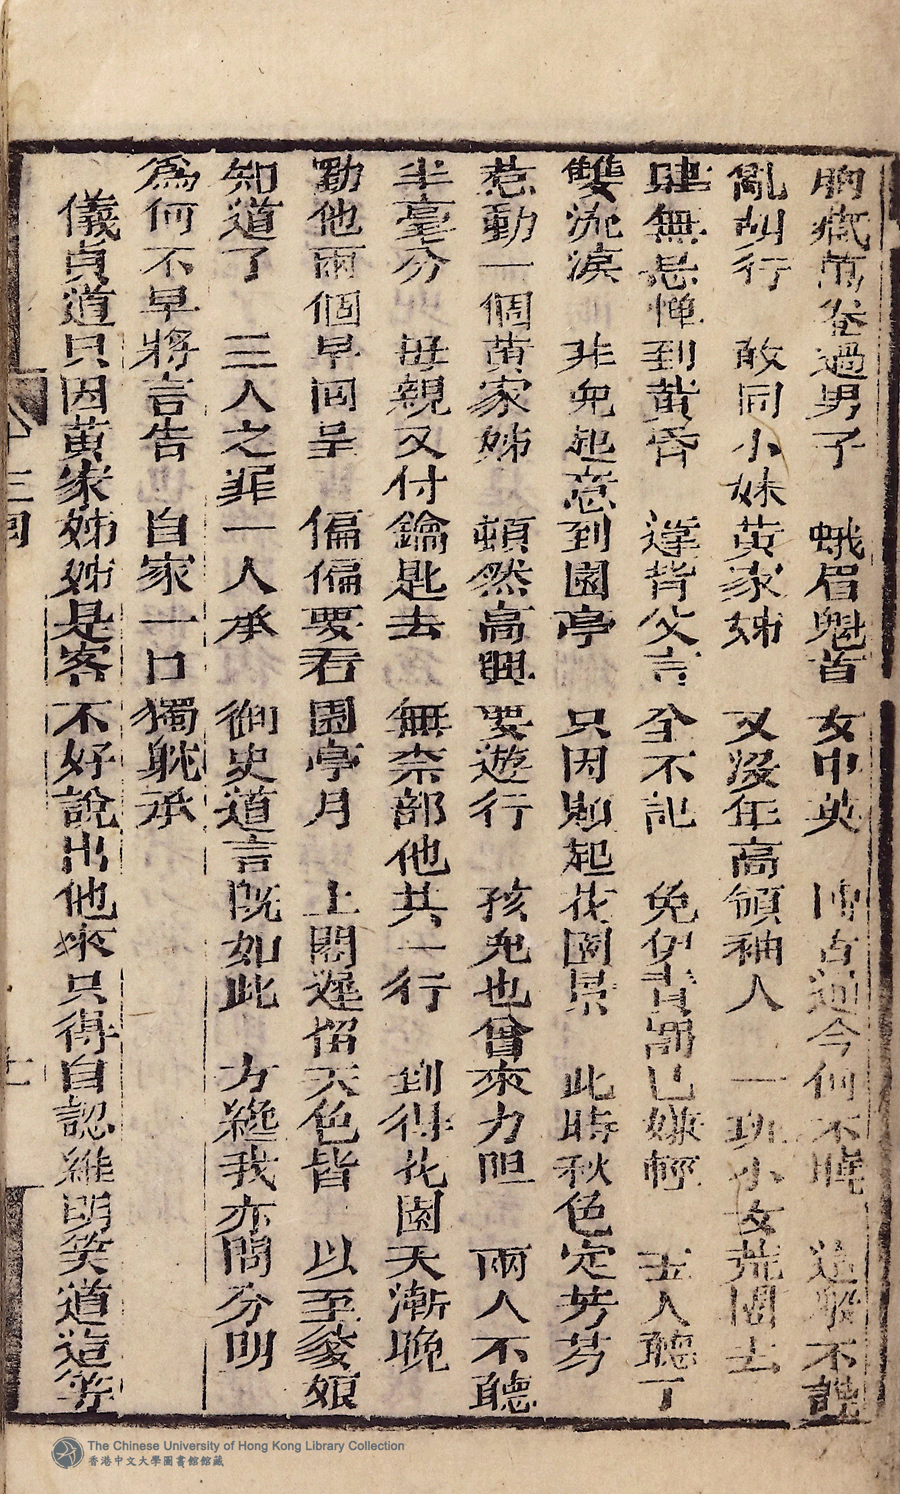 胸藏萬卷過男子　蛾眉魁首女中英　博古通今何不曉　這般不體
亂胡行　敢同小妹黃家姊　又沒年高領袖人　一班小女荒園去
肆無忌憚到黃昏　違背父言全不記　免伊責罰已嫌輕　玉人聽了
雙流淚　非兒起意到園亭　只因賭起花園景　此時秋色定芳芬
惹動一個黃家姊　頓然高興要遊行　孩兒也曾來力阻　兩人不聽
半毫分　母親又付鑰匙去　無奈部他共一行　到得花園天漸晚
勸他兩個早回呈　偏偏要看園亭月　上閣遲留天色皆　以至爹娘
知道了　三人之罪一人承　御史道言既如此　方纔我亦問分明
為何不早將言告　自家一口獨躭承
儀貞道只因黃家姊姊是客不好說出他來只得自認維明笑道這等
三回
十一
The Chinese University of Hong Kong Library Collection
香港中文大學圖書館館藏